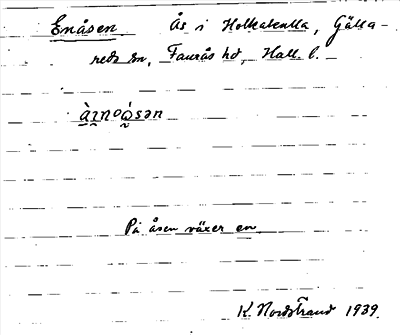 Enåsen Ås i Holkabacka, Gälla-
reds sn, Faurås hd, Hall. l.
På åsen växer en
K. Nordstrand 1939.